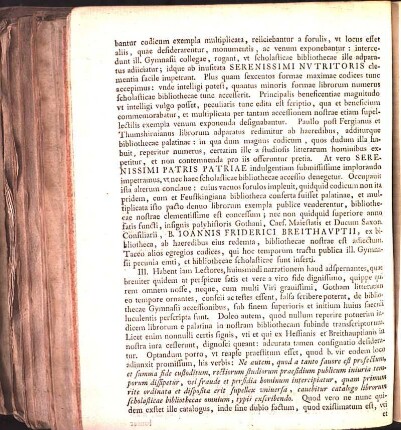 bantur codicum exempla multiplicata, reiiciebantur a forulis, vt locus esset
aliis, quae desiderarentur, monumentis, ac venum exponebantur: interce-
dunt ill. Gymnasii collegae, rogant, vt scholasticae bibliothecae ille adpara-
tus adiiciatur; idque ab inusitata SERENISSIMI NVTRITORIS cle-
mentia facile impetrant. Plus quam sexcentos formae maximae codices tunc
accepimus: vnde intelligi potest, quantus minoris formae librorum numerus
scholasticae bibliothecae tunc accesserit. Principalis beneficentiae magnitudo
vt intelligi vulgo posset, peculiaris tunc edita est scriptio, qua et beneficium
commemorabatur, et multiplicata per tantam accessionem nostrae etiam supel-
lectilis exempla venum exponenda designabantur. Paullo post Fergianus et
Thumshirnianus librorum adparatus redimitur ab haeredibus, additurque
bibliothecae palatinae: in qua dum magnus codicum, quos dudum illa ha-
buit, reperitur numerus, certatim ille a studiosis litterarum hominibus expe-
titur, et non contemnenda pro iis offeruntur pretia. At vero SERE-
NISSIMI PATRIS PATRIAE indulgentiam submississime implorando
impetramus, vt nec haec scholasticae bibliothecae accessio denegetur. Occupauit
issa alterum conclaue: cuius vacuos forulos impleuit, quidquid codicum non ita
pridem, cum et Feustkingiana bibliotheca conferta fuisset palatinae, et mul-
tiplicata isto pacto demo librorum exempla publice venderentur, bibliothe-
cae nostrae clementissime est concessum; nec non quidquid superiore anno
fatis functi, insignis polyhistoris Gothani, Caes. Maiestatis et Ducum Saxon.
Consiliarii, B. IOANNIS FRIDERICI BREITHAVPTII, ex bi-
bliotheca, ab haeredibus eius redemta, bibliothecae nostrae est adiectum.
Taceo alios egregios codices, qui hoc temporum tractu publica ill. Gymna-
sii pecunia emti, et bibliothecae scholasticae sunt inserti.
III. Habent iam Lectores, huiusmodi narrationem haud adspernantes, quae
breuiter quidem at perspicue satis et vere a viro fide dignissimo, quippe qui
rem omnem nosse, neque, cum multi Viri grauissimi, Gotham litteratam
eo tempore ornantes, conscii ac testes essent, falsa scribere poterat, de biblio-
thecae Gymnasii accessionibus, sub finem superioris et initium huius saeculi
luculentis perscripta sunt. Doleo autem, quod nullum reperire potuerim in-
dicem librorum e palatina in nostram bibliothecam subinde transscriptorum.
Licet enim nonnulli certis signis, vti et qui ex Hessianis et Breithauptianis in
nostra iura cesserunt, dignosci queant: adcurata tamen consignatio desidera-
tur. Optandum porro, vt reapse praestitum esset, quod b. vir eodem loco
adiunxit promissum, his verbis: Ne autem, quod a tanto fauore est profectum,
et summa fide custoditum, rectiorum studiorum praesidium publicum iniuria tem-
porum dissipetur, vel fraude et perfidia hominum intercipiatur, quam primum
rite ordinata et disposita erit supellex vniuersa, cauebitur catalogo librorum
scholasticae bibliothecae omnium typis exscribendo. Quod vero ne nunc qui-
dem exstet ille catalogus, inde sine dubio factum, quod existimatum est, vti
et